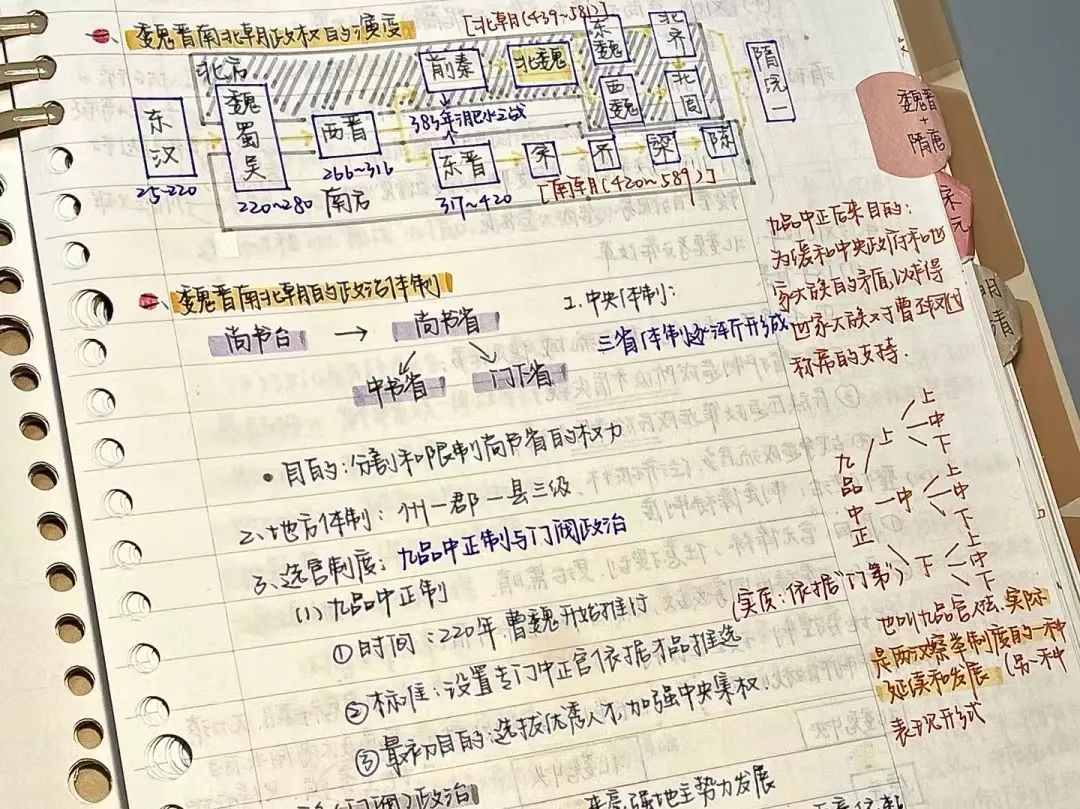 魏晋南北朝政权的演变
[北朝(439~581)]
北方
东汉
25-220
魏
蜀
吴
220~280
西晋
266~316
前秦
北魏
东魏
北齐
西魏
北周
隋统一
383年淝水之战
东晋
317~420
宋
齐
梁
陈
南方
[南朝(420~589)]
魏晋
+
隋唐
宋元
明清
魏晋南北朝的政治体制
尚书台 → 尚书省
中书省
门下省
1.中央体制:
三省体制逐渐形成
• 目的:分割和限制尚书省的权力
2、地方体制: 州一郡一县三级
3、选官制度: 九品中正制与门阀政治
(1) 九品中正制
① 时间: 220年 曹魏开始推行
② 标准: 设置专门中正官依据才品推选
③ 最初目的: 选拔优秀人才,加强中央集权.
(门阀)政治
强地主势力发展
九品中正后来目的:
为缓和中央政府和世
家大族的矛盾,以求得
世家大族对于曹丕
称帝的支持.
九品中正
上
上
中
下
中
上
中
下
下
上
中
下
(实质:依据"门第")
也叫九品官人法.实际
是两汉察举制度的一种
延续和发展 (另一种
表现形式